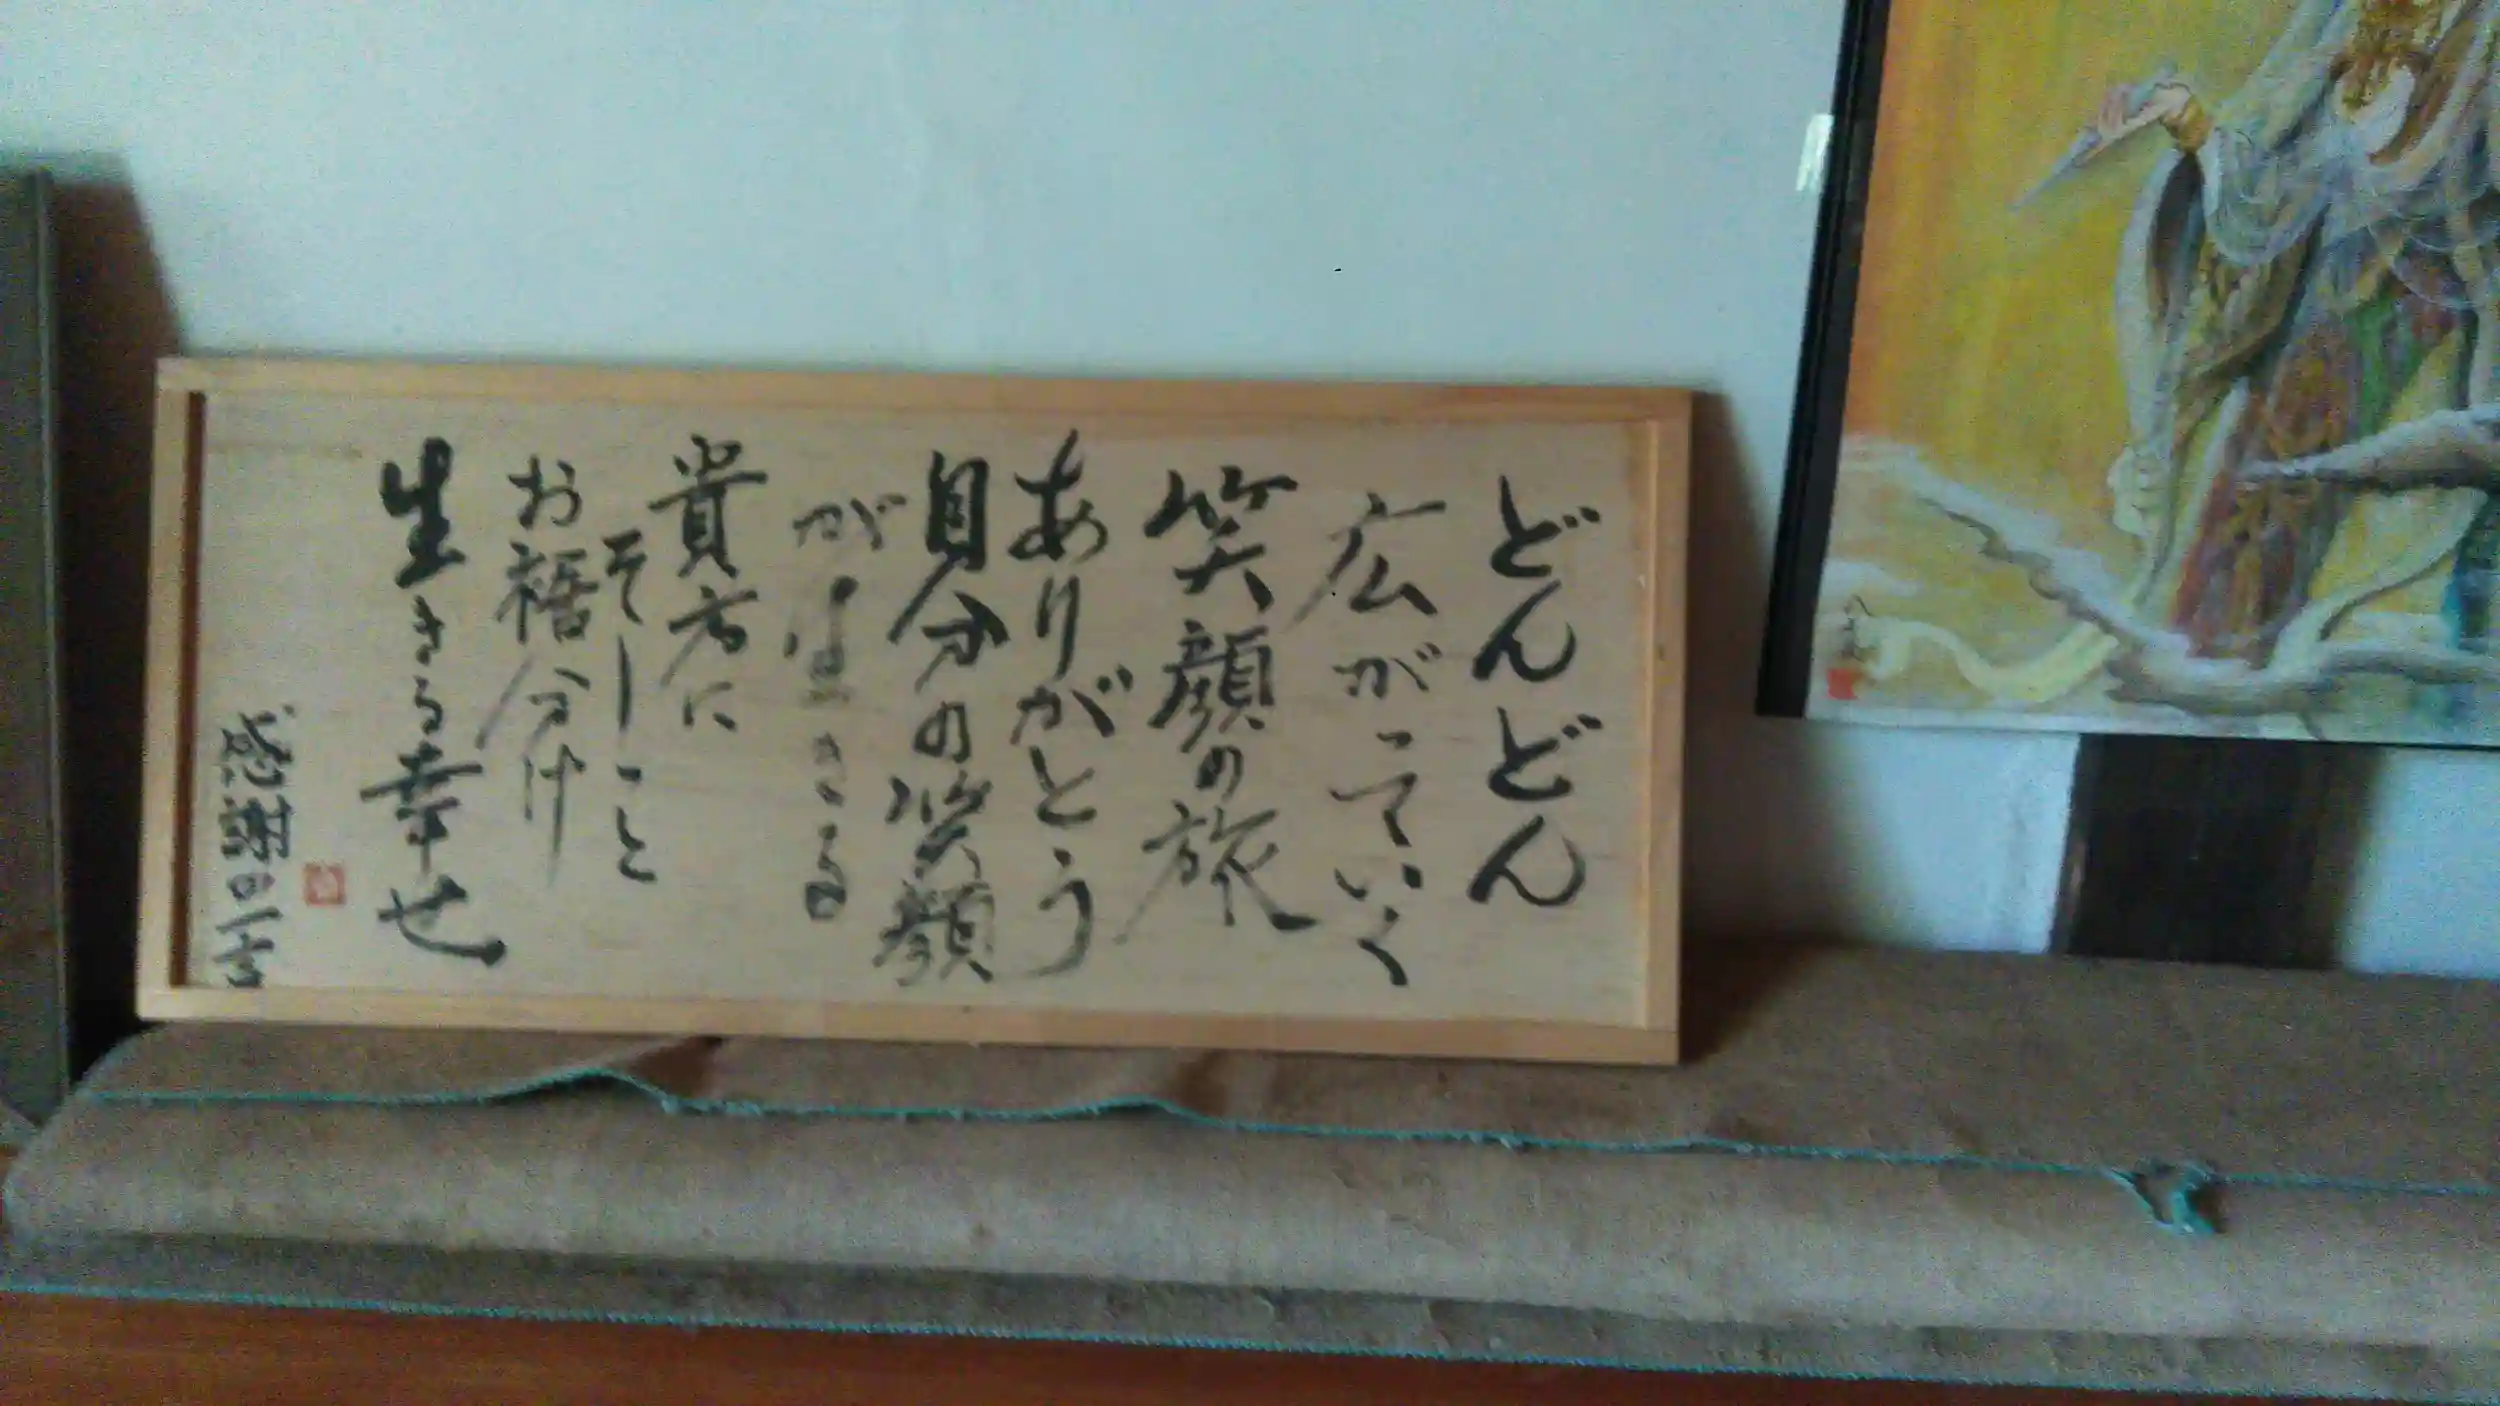 どんどん
広がっていく
笑顔の旅
ありがとう
自分の笑顔
が
貴方に
そーっと
お裾分け
生きる幸せ
感謝